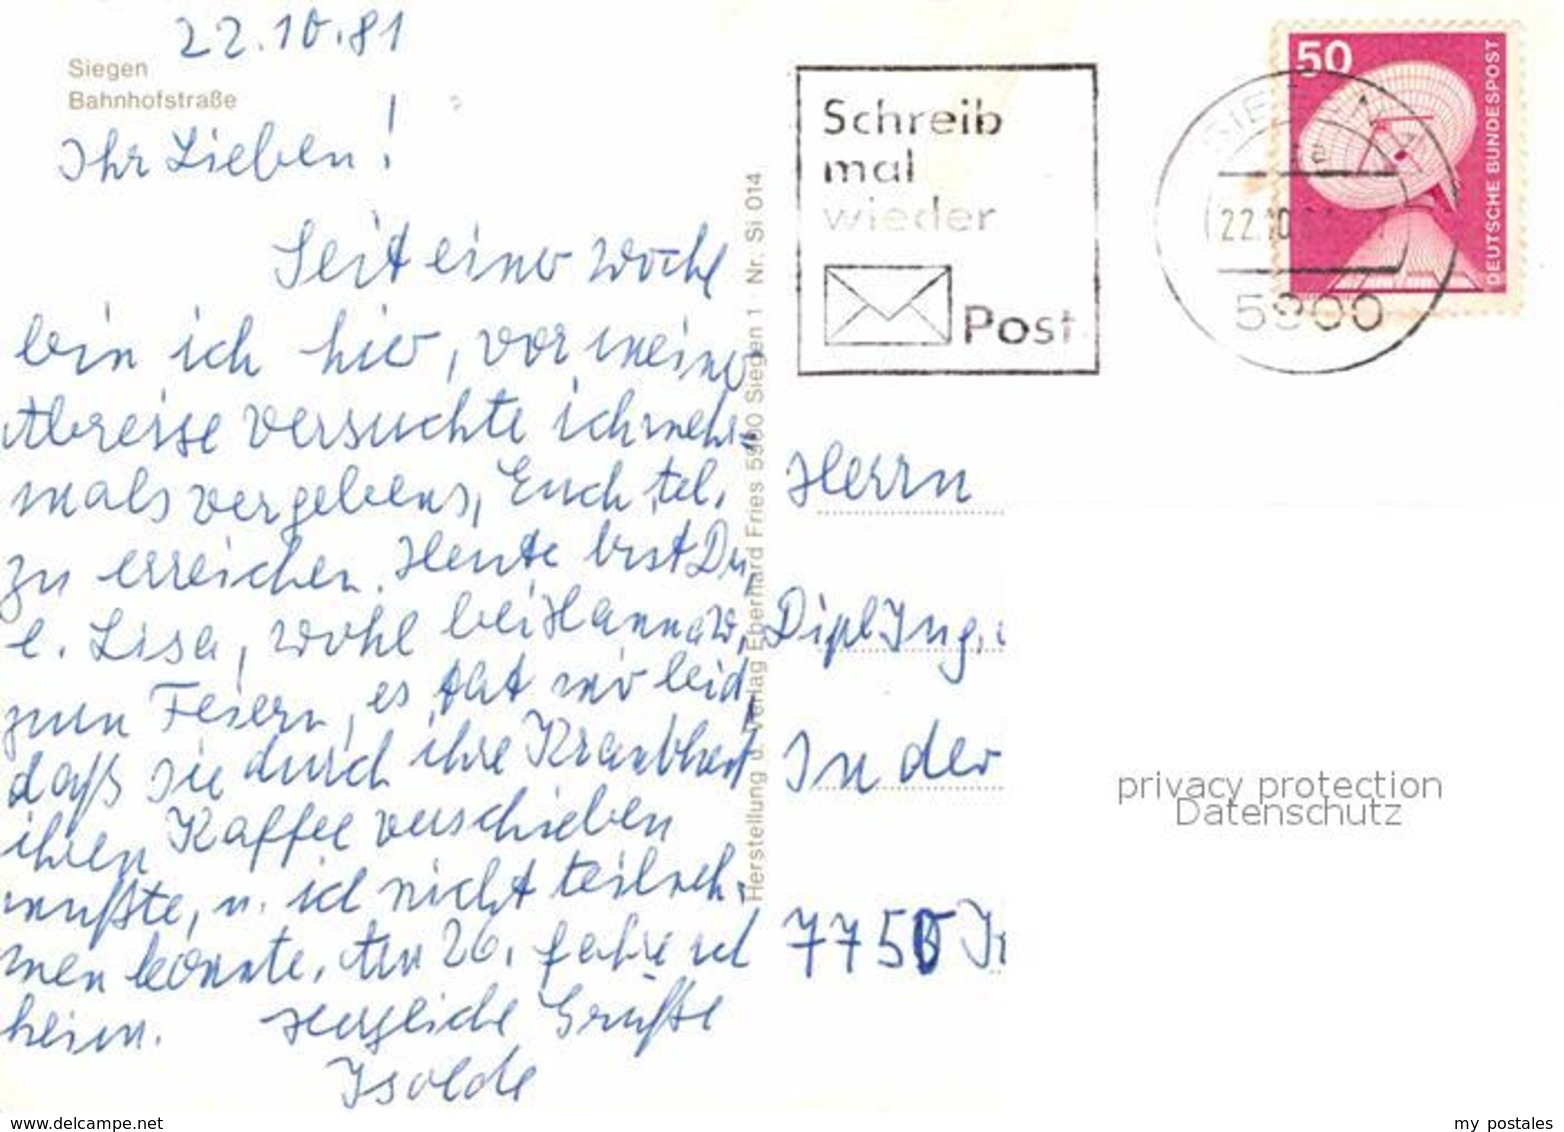 22.10.81
Siegen
Bahnhofstraße
Ihr Lieben!
Seit einer Woche
bin ich hier, vor meiner
Abreise versuchte ich mehr-
mals vergebens, Euch tel.
zu erreichen. Heute bist Du,
l. Lisa, wohl bei Hanna W.
zum Feiern, es tat mir leid,
daß sie durch ihre Krankheit
ihren Kaffee verschieben
mußte, u. ich nicht teilneh-
men konnte. Am 26. fahre ich
heim. Herzliche Grüße
Isolde
Herstellung u. Verlag Eberhard Fries 5900 Siegen 1 · Nr. Si 014
Schreib
mal
wieder
Post
50
DEUTSCHE BUNDESPOST
SIEGEN 1
22.10.
5900
Herrn
Dipl Ing.
In der
7750
privacy protection
Datenschutz
www.delcampe.net
my postales